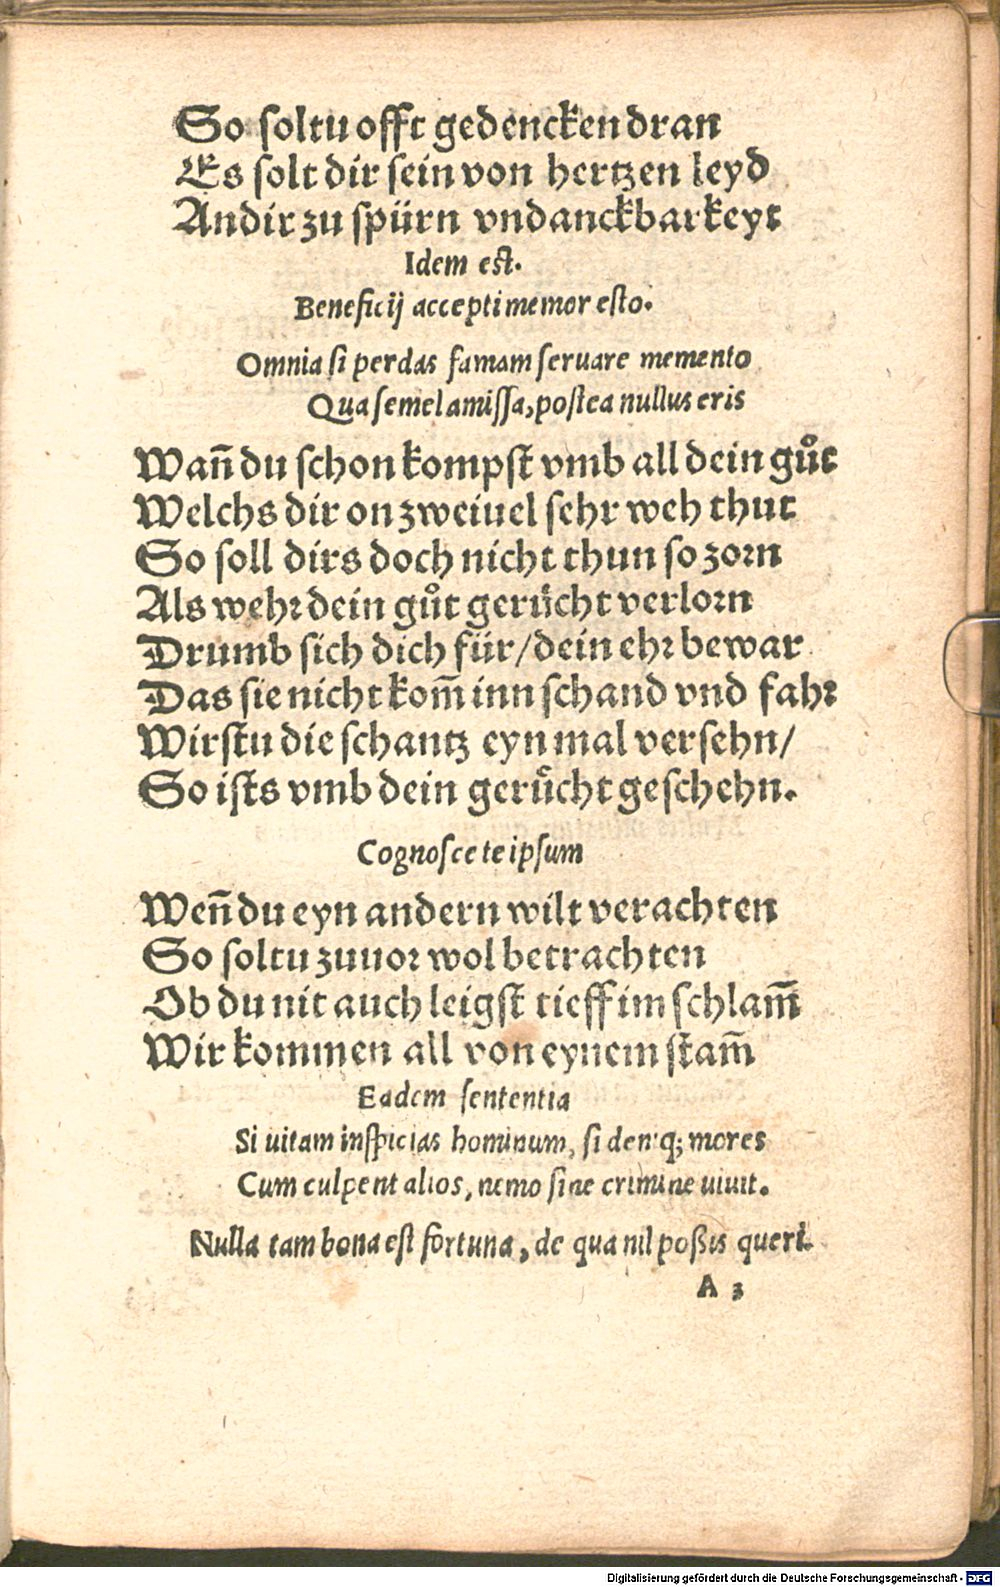 So soltu offt gedencken dran
Es solt dir sein von hertzen leyd
An dir zu spürn vndanckbarkeyt
Idem est.
Beneficij accepti memor esto.
Omnia si perdas famam seruare memento
Qua semel amissa, postea nullus eris
Wañ du schon kompst vmb all dein gůt
Welchs dir on zweiuel sehr weh thut
So soll dirs doch nicht thun so zorn
Als wehr dein gůt gerücht verlorn
Drumb sich dich für/dein ehr bewar
Das sie nicht kom̃ inn schand vnd fahr
Wirstu die schantz eyn mal versehn/
So ists vmb dein gerücht geschehn.
Cognosce te ipsum
Weñ du eyn andern wilt verachten
So soltu zuuor wol betrachten
Ob du nit auch leigst tieff im schlam̃
Wir kommen all von eynem stam̃
Eadem sententia
Si uitam inspicias hominum, si deniq; mores
Cum culpent alios, nemo sine crimine uiuit.
Nulla tam bona est fortuna, de qua nil poßis queri.
A 3
Digitalisierung gefördert durch die Deutsche Forschungsgemeinschaft - DFG